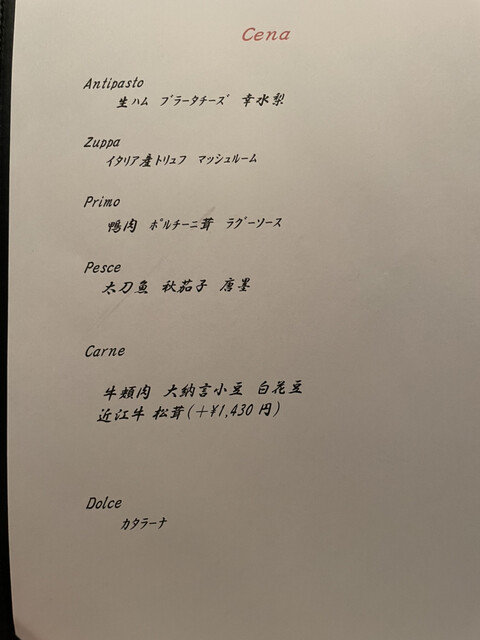 Cena
Antipasto
生ハム ブラータチーズ 幸水梨
Zuppa
イタリア産トリュフ マッシュルーム
Primo
鴨肉 ポルチーニ茸 ラグーソース
Pesce
太刀魚 秋茄子 唐墨
Carne
牛頬肉 大納言小豆 白花豆
近江牛 松茸(+¥1,430円)
Dolce
カタラーナ